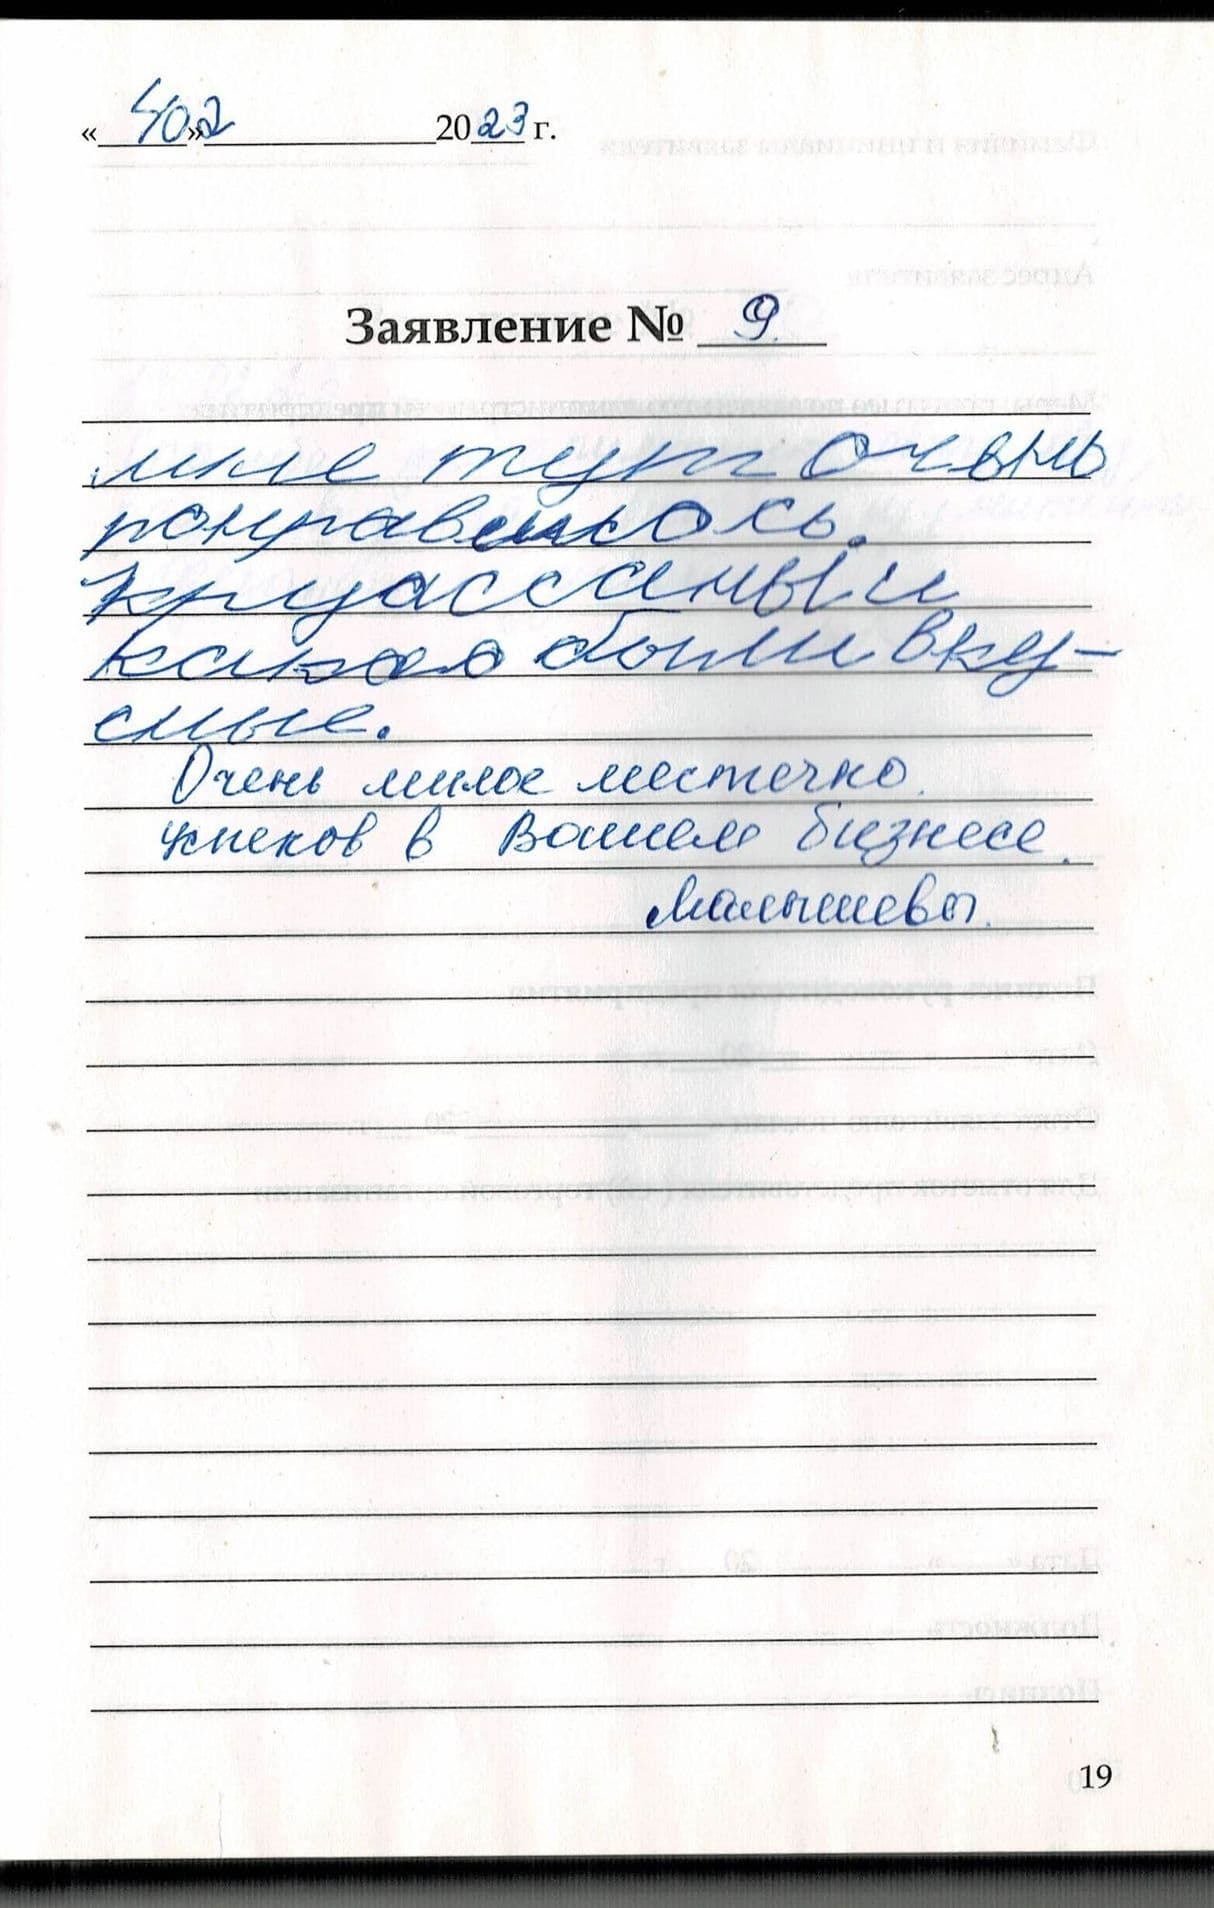 « 402 » 2023 г.
Заявление № 9
мне тут очень
понравилось.
Круассаны и
какао были вку-
сные.
Очень милое местечко.
Успехов в Вашем бизнесе.
Малышевы.
19